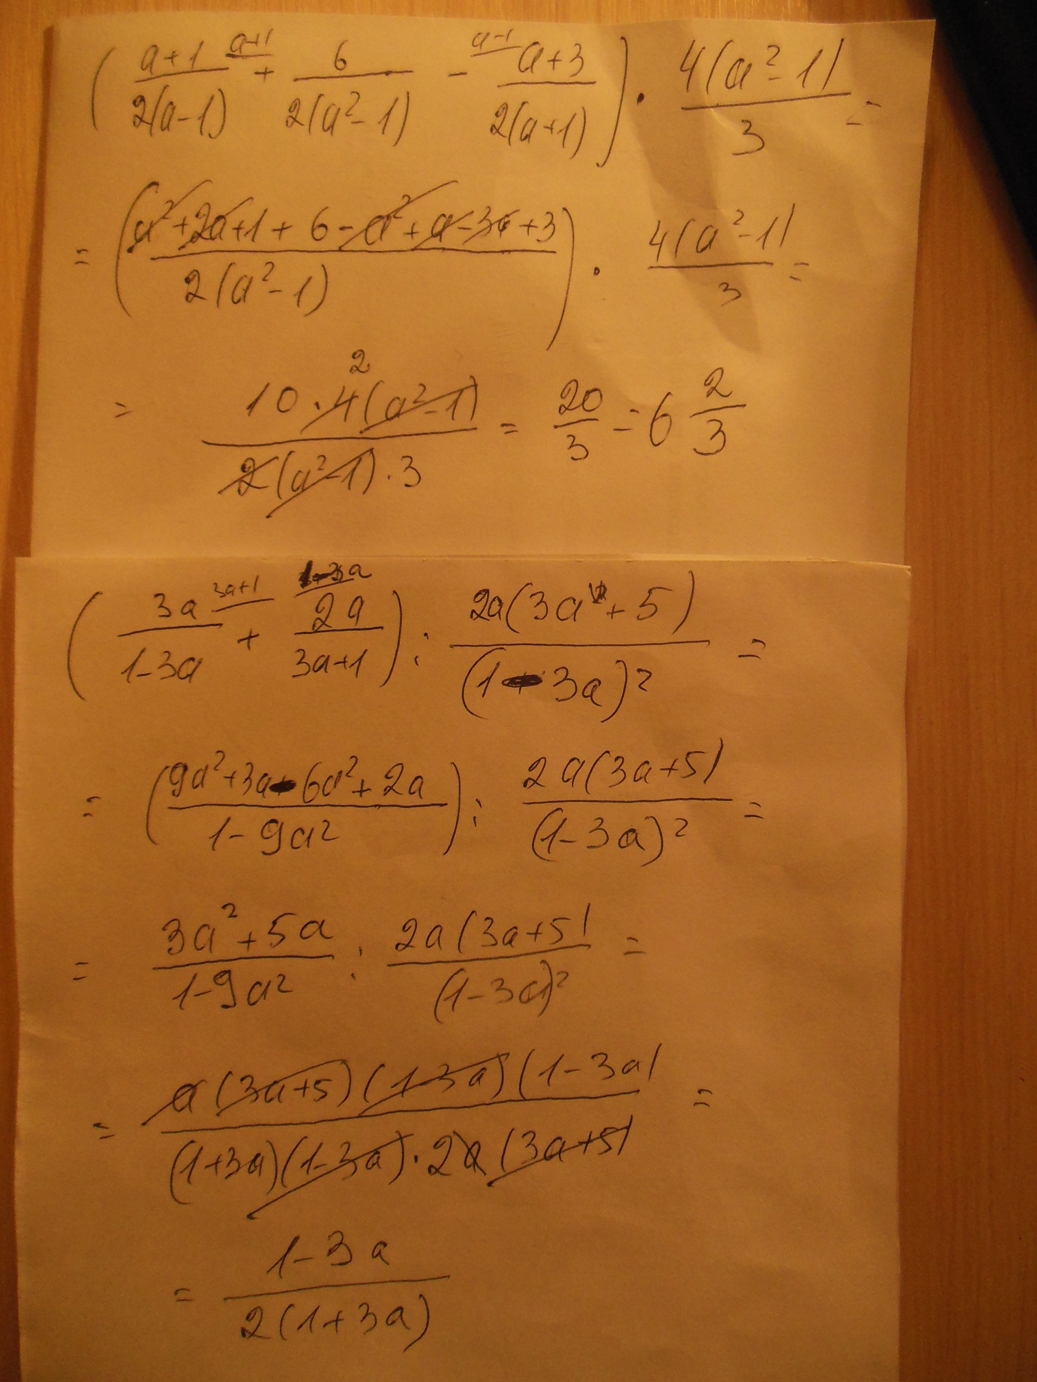 ( a+1/2(a-1) ^a+1 + 6/2(a²-1) - ^a-1 a+3/2(a+1) ) · 4(a²-1)/3 =
= ( a²+2a+1+6-a²+a-3a+3/2(a²-1) ) · 4(a²-1)/3 =
= 10·4(a²-1)/2(a²-1)·3 ^2 = 20/3 = 6 2/3
( 3a/1-3a ^3a+1 + 2a/3a+1 ^1-3a ) : 2a(3a+5)/(1-3a)² =
= ( 9a²+3a-6a²+2a/1-9a² ) : 2a(3a+5)/(1-3a)² =
= 3a²+5a/1-9a² : 2a(3a+5)/(1-3a)² =
= a(3a+5)(1-3a)(1-3a)/(1+3a)(1-3a)·2a(3a+5) =
= 1-3a/2(1+3a)